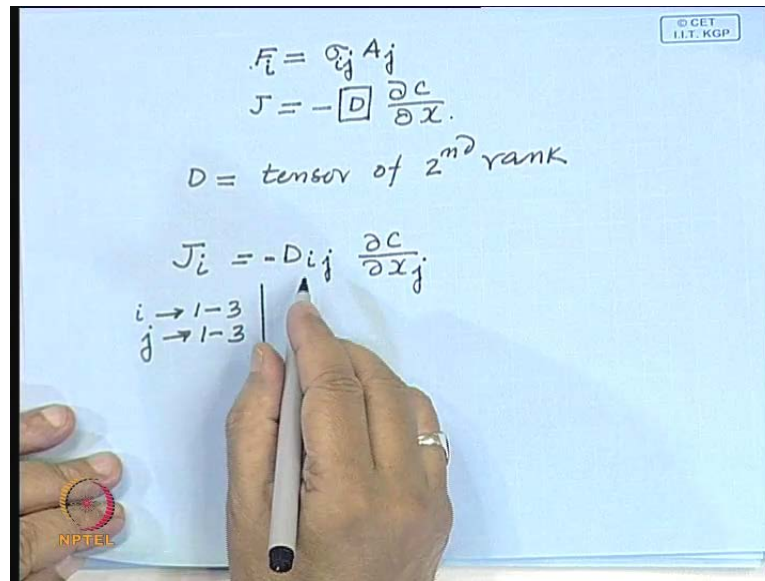 © CET
I.I.T. KGP
Fᵢ = σᵢⱼ Aⱼ
J = - D ∂C/∂x.
D = tensor of 2nd rank
Jᵢ = - Dᵢⱼ ∂C/∂xⱼ
i → 1-3
j → 1-3
NPTEL